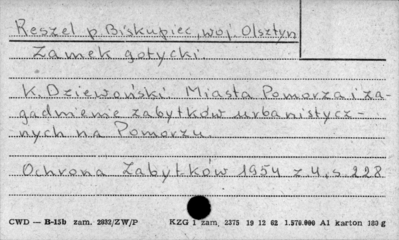 Reszel p. Biskupiec, woj. Olsztyn
Zamek gotycki.
K. Dziewoński Miasta Pomorza i za-
gadnienie zabytków urbanistycz-
nych na Pomorzu.
Ochrona Zabytków 1954 z 4, s. 228
CWD — B-15b zam. 2932/ZW/P KZG 1 zam. 2375 19 12 62 1.570.000 A1 karton 180 g